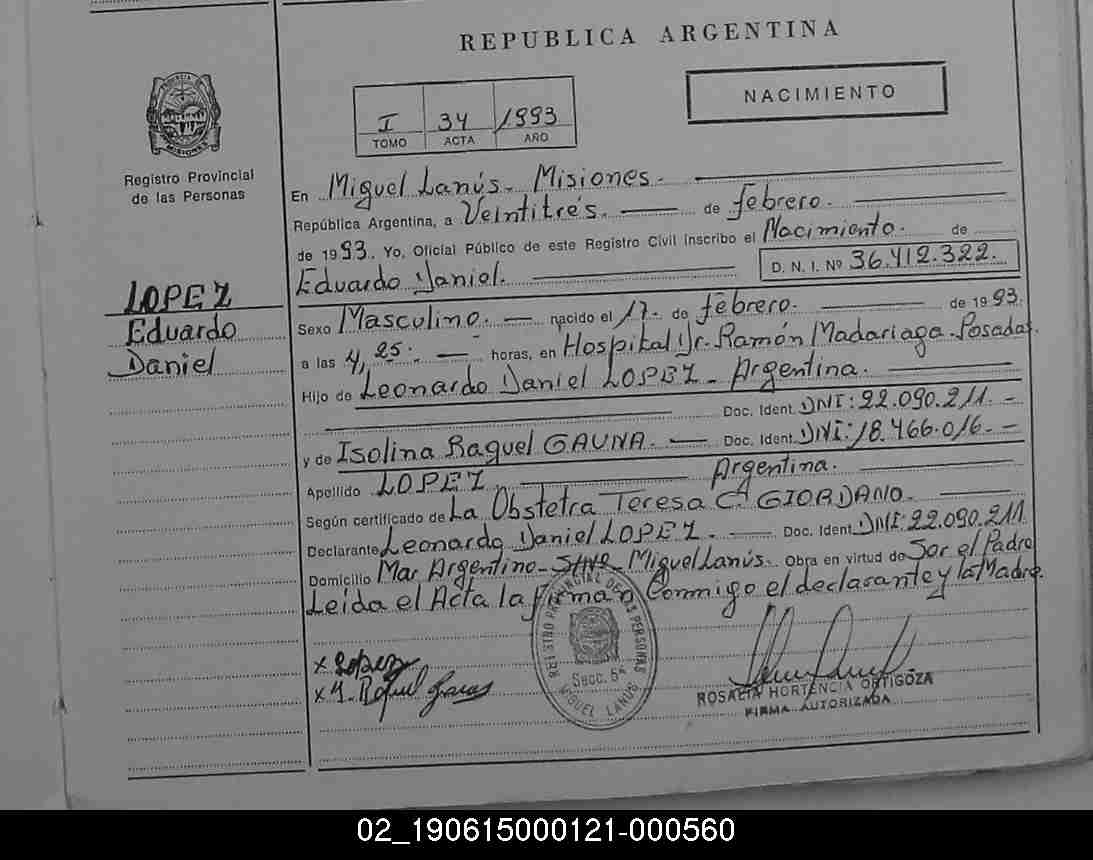 REPUBLICA ARGENTINA
NACIMIENTO
I 34 1993
TOMO ACTA AÑO
PROVINCIA DE MISIONES
Registro Provincial
de las Personas
LOPEZ
Eduardo
Daniel
En Miguel Lanús - Misiones.
República Argentina, a Veintitrés. de febrero.
de 1993. Yo, Oficial Público de este Registro Civil inscribo el Nacimiento. de
Eduardo Daniel. D. N. I. Nº 36.412.322.
Sexo Masculino. nacido el 17. de febrero. de 1993.
a las 4,25. horas, en Hospital Dr. Ramón Madariaga - Posadas.
Hijo de Leonardo Daniel LOPEZ - Argentina.
Doc. Ident. DNI: 22.090.211.
y de Isolina Raquel GAUNA. Doc. Ident. DNI: 18.466.016.
Apellido LOPEZ Argentina.
Según certificado de La Obstetra Teresa C. GIORDANO.
Declarante Leonardo Daniel LOPEZ. Doc. Ident. DNI: 22.090.211.
Domicilio Mar Argentino - Miguel Lanús. Obra en virtud de Ser el Padre
Leida el Acta la firman Conmigo el declarante y la Madre.
x Lopez
REGISTRO PROVINCIAL DE LAS PERSONAS
Secc. 6ª
MIGUEL LANUS
ROSALIA HORTENCIA ORTIGOZA
FIRMA AUTORIZADA
02_190615000121-000560